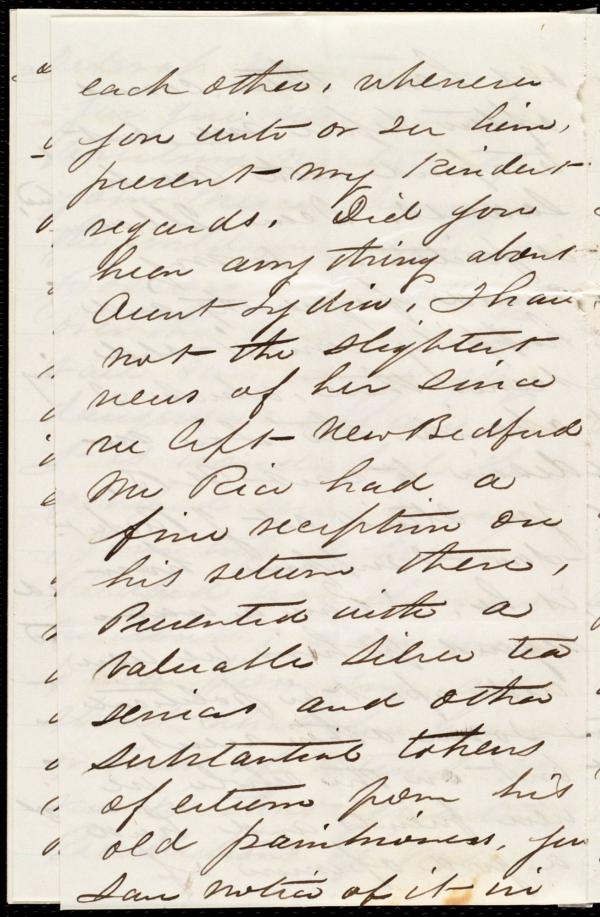 each other, whenever
you write or see him,
present my kindest
regards. Did you
hear any thing about
Aunt Lydia, I have
not the slightest
news of her since
we left New Bedford
Mr Rice had a
fine reception on
his return there,
Presented with a
valuable Silver tea
service and other
substantial tokens
of esteem from his
old parishioners, you
saw notice of it in